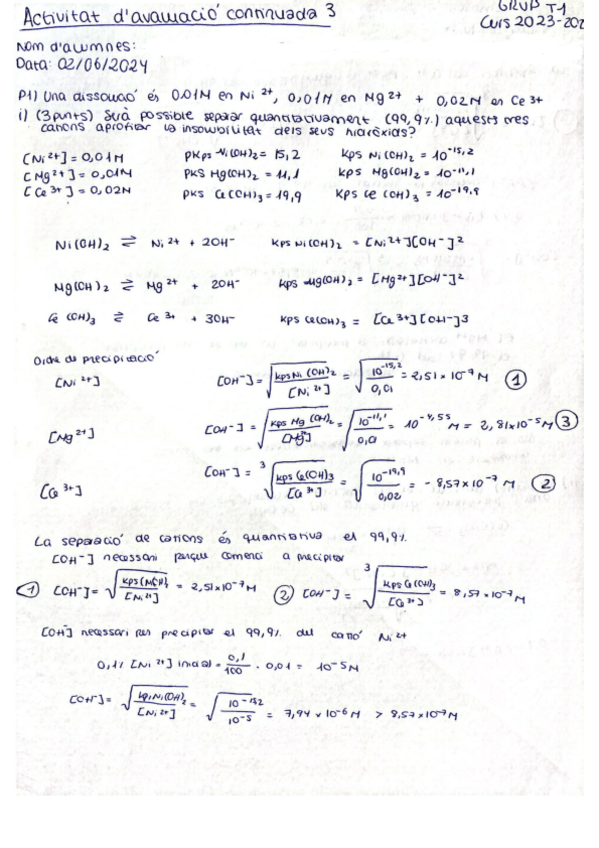 Activitat d'avaluació continuada 3
GRUP T1
Curs 2023-202
Nom d'alumnes:
Data: 02/06/2024
P1) Una dissolució és 0.01M en Ni 2+, 0,01M en Mg 2+ + 0,02M en Ce 3+
i) (3 punts) Serà possible separar quantitativament (99,9%) aquests tres
cations aprofitar la insolubilitat dels seus hidròxids?
[Ni 2+] = 0,01M pKps Ni(OH)2 = 15,2 Kps Ni(OH)2 = 10^-15,2
[Mg 2+] = 0,01M pKS Mg(OH)2 = 11,1 Kps Mg(OH)2 = 10^-11,1
[Ce 3+] = 0,02M pKS Ce(OH)3 = 19,9 Kps Ce (OH)3 = 10^-19,9
Ni(OH)2 ⇌ Ni 2+ + 2OH- Kps Ni(OH)2 = [Ni2+][OH-]2
Mg(OH)2 ⇌ Mg 2+ + 2OH- Kps Mg(OH)2 = [Mg2+][OH-]2
Ce (OH)3 ⇌ Ce 3+ + 3OH- Kps Ce(OH)3 = [Ce3+][OH-]3
Ordre de precipitació
[Ni 2+] [OH-] = √(Kps Ni (OH)2 / [Ni 2+]) = √(10^-15,2 / 0,01) = 2,51×10^-7 M ①
[Mg 2+] [OH-] = √(Kps Mg (OH)2 / [Mg2+]) = √(10^-11,1 / 0,01) = 10^-4,55 M = 2,81×10^-5 M ③
[Ce 3+] [OH-] = 3√(Kps Ce(OH)3 / [Ce 3+]) = √(10^-19,9 / 0,02) = - 8,57×10^-7 M ②
La separació de cations és quantitativa el 99,9%
[OH-] necessari perque comenci a precipitar
① [OH-] = √(Kps / [Ni2+]) = 2,51×10^-7 M ② [OH-] = 3√(Kps Ce(OH)3 / [Ce3+]) = 8,57×10^-7 M
[OH-] necessari per precipitar el 99,9% del catió Ni 2+
0,1% [Ni 2+] inicial = 0,1/100 · 0,01 = 10^-5 M
[OH-] = √(Kps Ni(OH)2 / [Ni 2+]) = √(10^-15,2 / 10^-5) = 7,94 × 10^-6 M > 8,57×10^-7 M